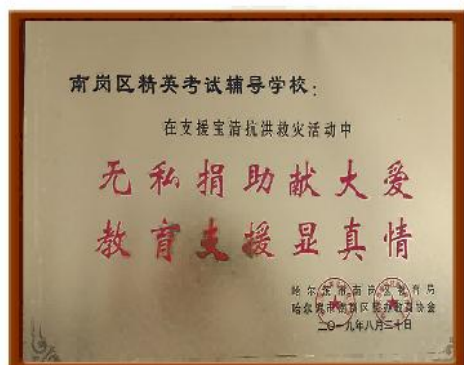 南岗区精英考试辅导学校：
在支援宝清抗洪救灾活动中
无私捐助献大爱
教育支援显真情
哈尔滨市南岗区教育局
哈尔滨市南岗区民办教育协会
二〇一九年八月二十日